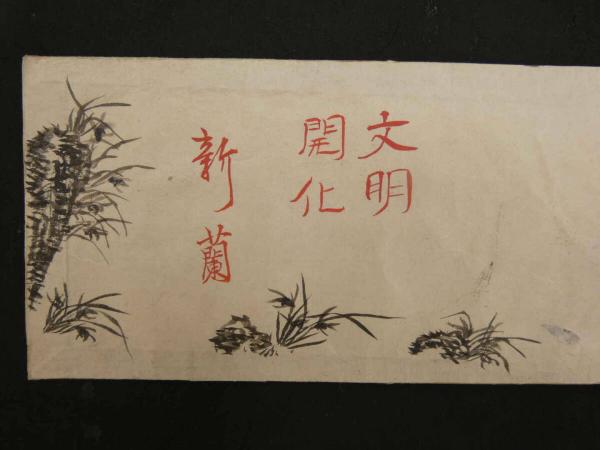 文明
開化
新蘭